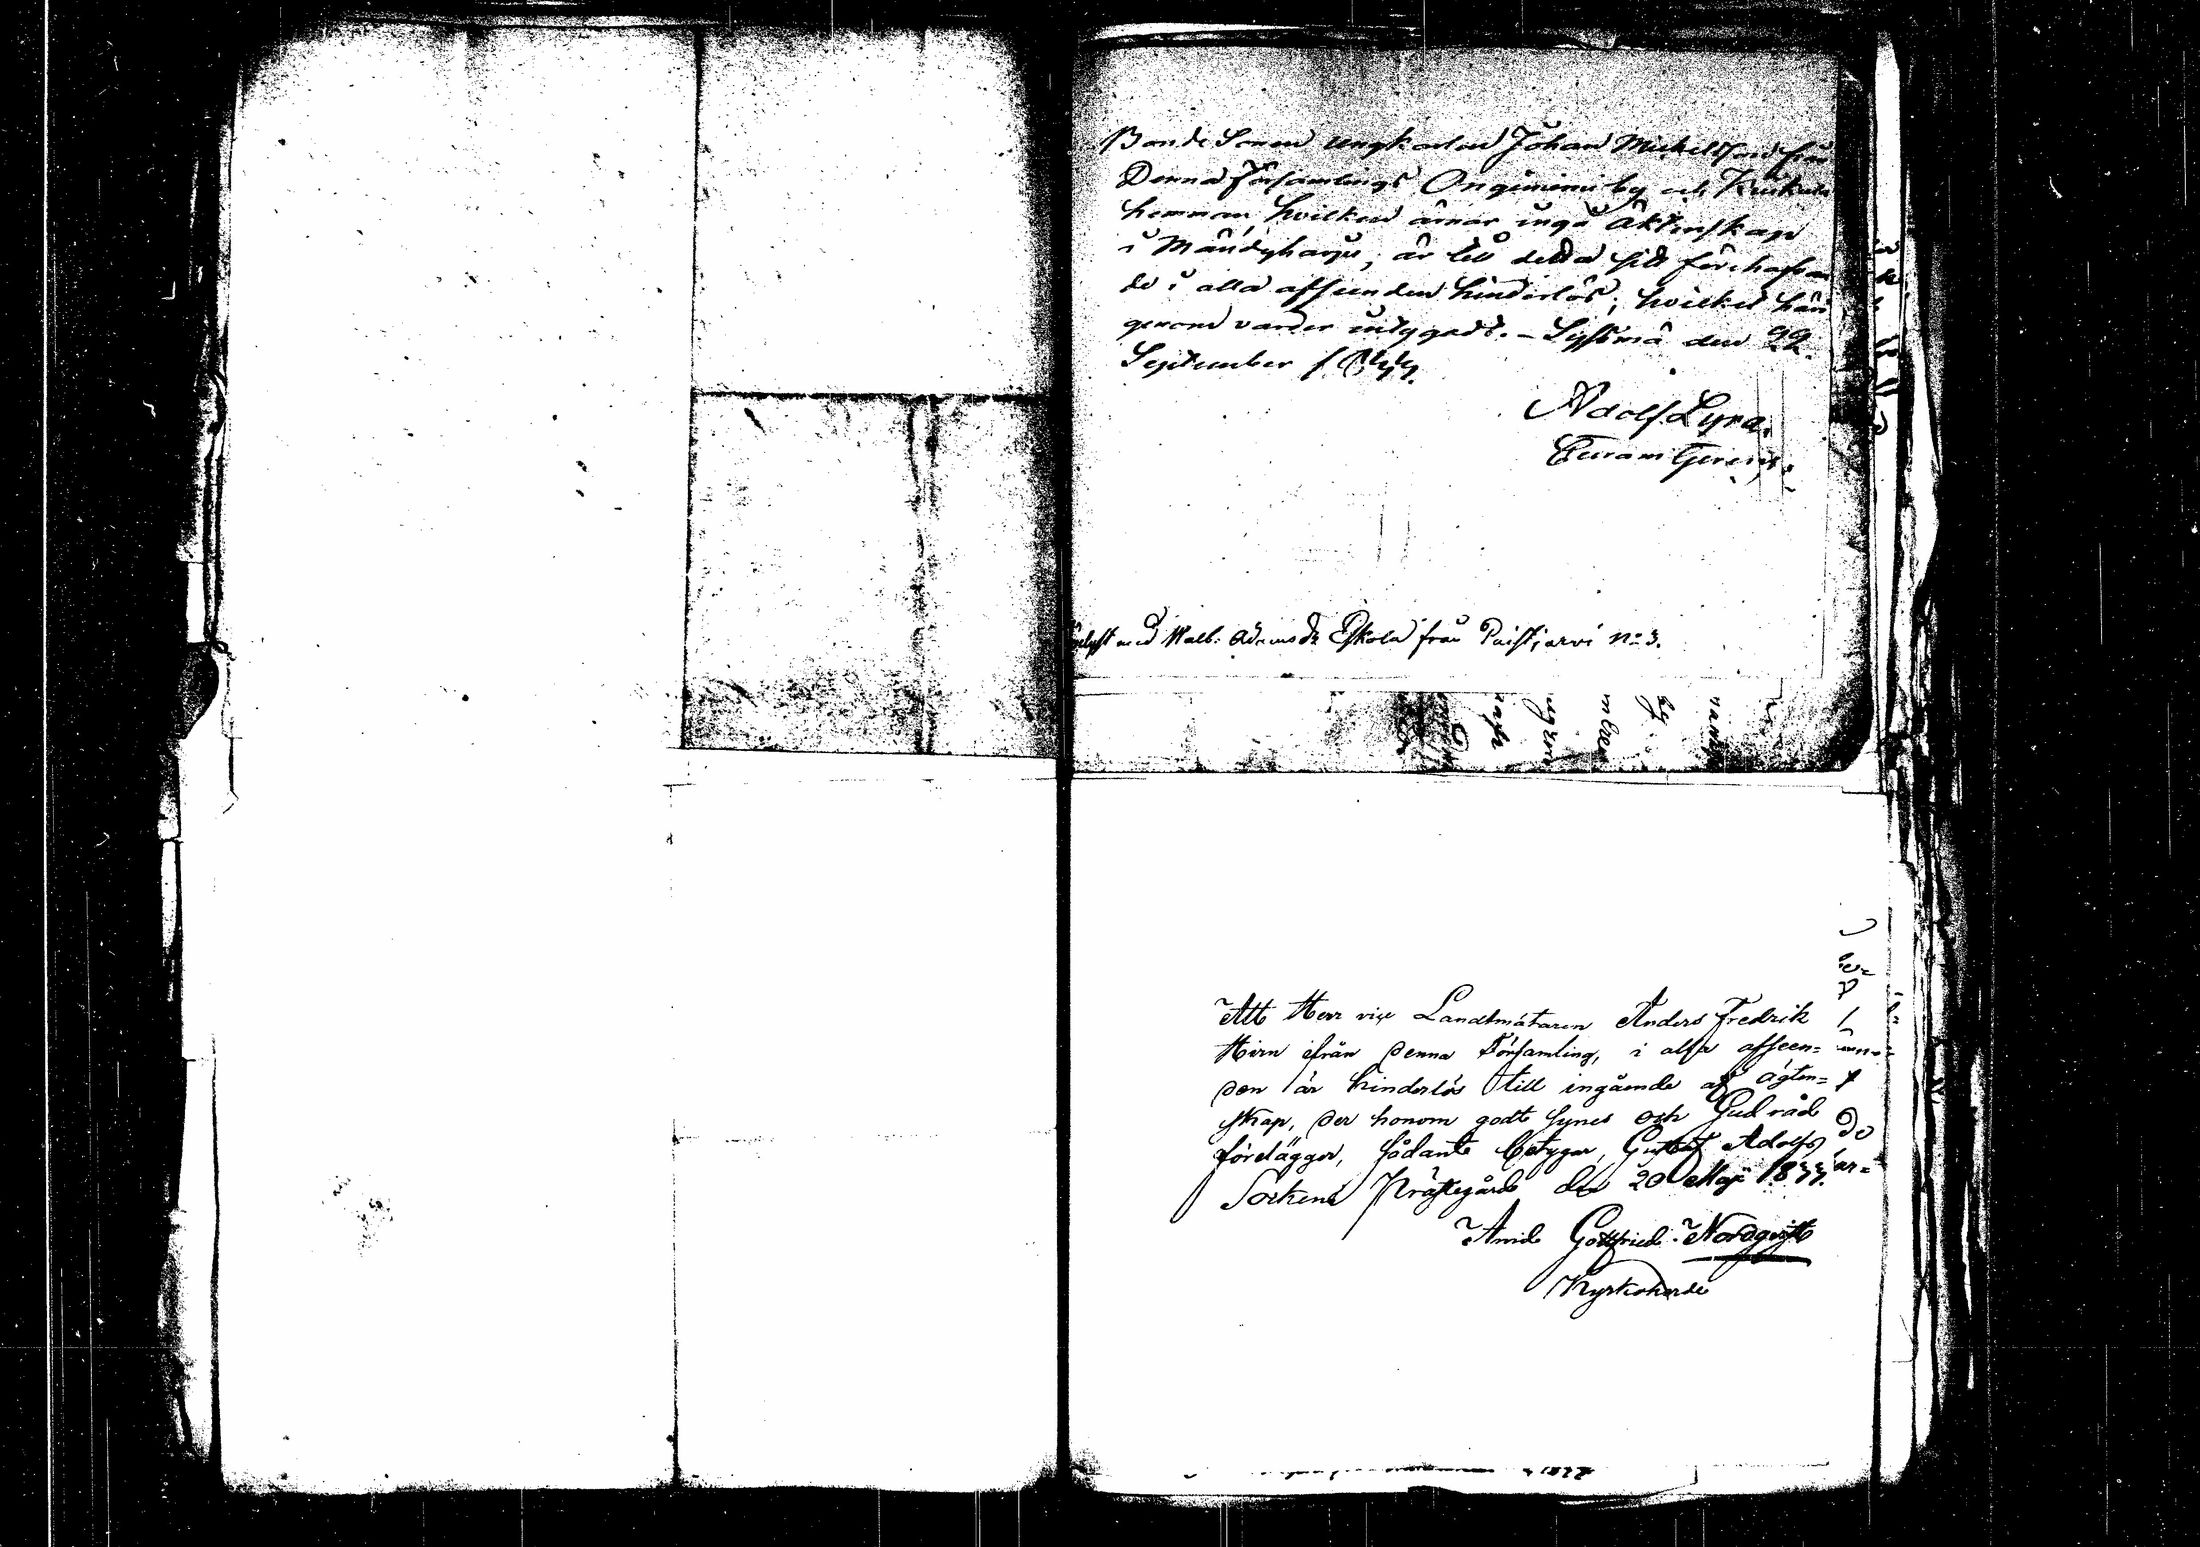 Bonde Sonen ungkarlen Johan Mickelsson från
Denna Församlings Onginiemi by och
hemman, hvilken ämar ingå Äktenskap
i Mändyharju, är till detta sitt förehafvan
de i alla afseenden hinderlös; hvilket här
genom varder intygadt. - Sysmä den 22.
September 1844.
Adolf Lyra.
Curam Gerens.
lyst med Walb. Adamsdr Eskola från Paistjärvi No 3.
Att Herr vice Landtmätaren Anders Fredrik
Hirn ifrån denna Församling, i alla afseen=
den är hinderlös till ingående af ägten=
skap, der honom godt synes och Gud råd
förelägger, sådant betygar, Gustaf Adolfs
Sockens Prästegård den 20 Maji 1844.
Arvid Gottfried Nordqvist
Kyrkoherde